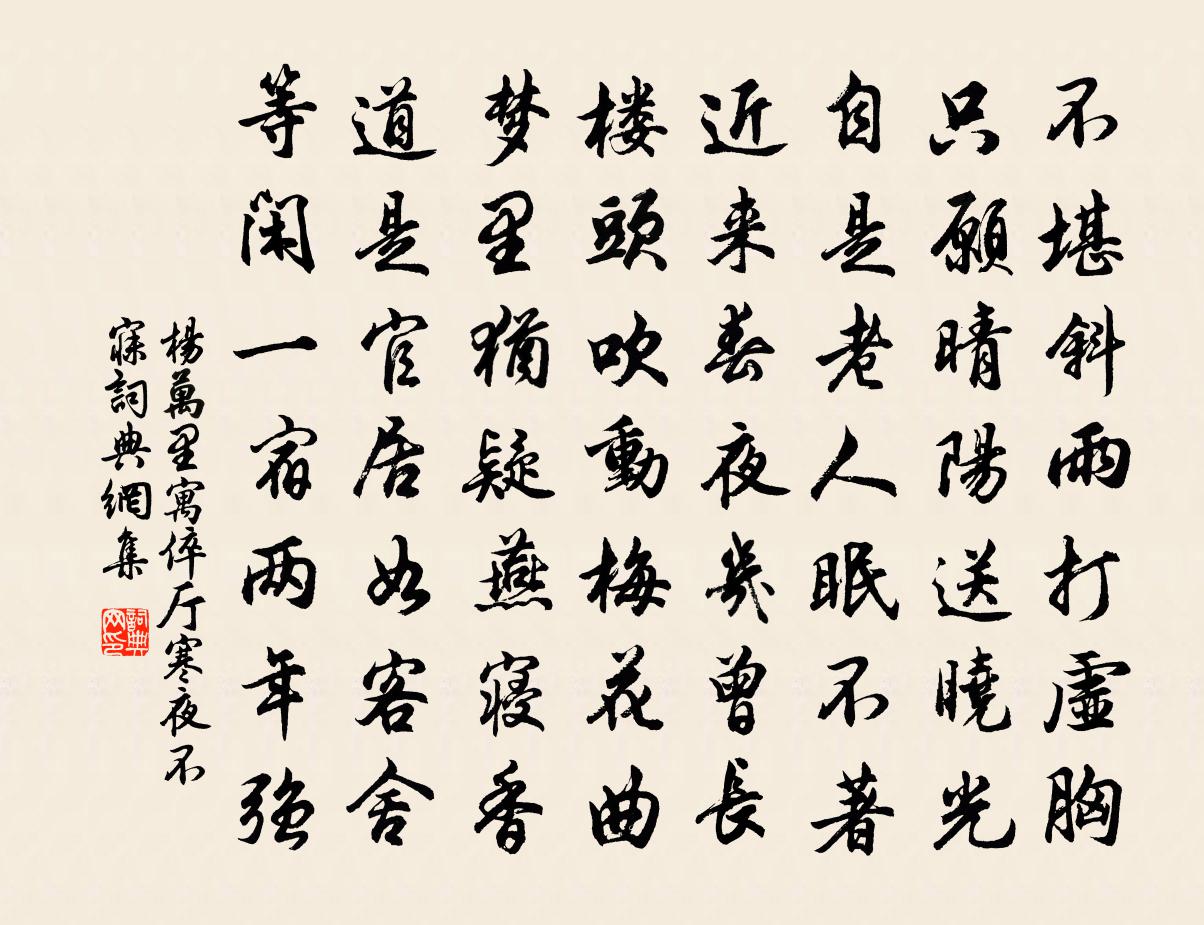 不堪斜雨打虛胸
只願晴陽送曉光
自是老人眠不著
近来春夜幾曾長
楼頭吹動梅花曲
梦里猶疑燕寝香
道是官居如客舍
等闲一宿两年强
楊萬里寓倅厅寒夜不
寐詞典網集
詞典
网印